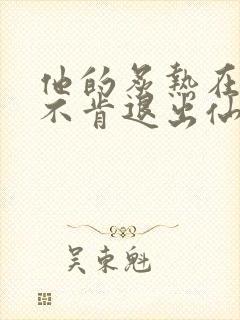 他的炙熱在
不肯退出仙
吴东魁